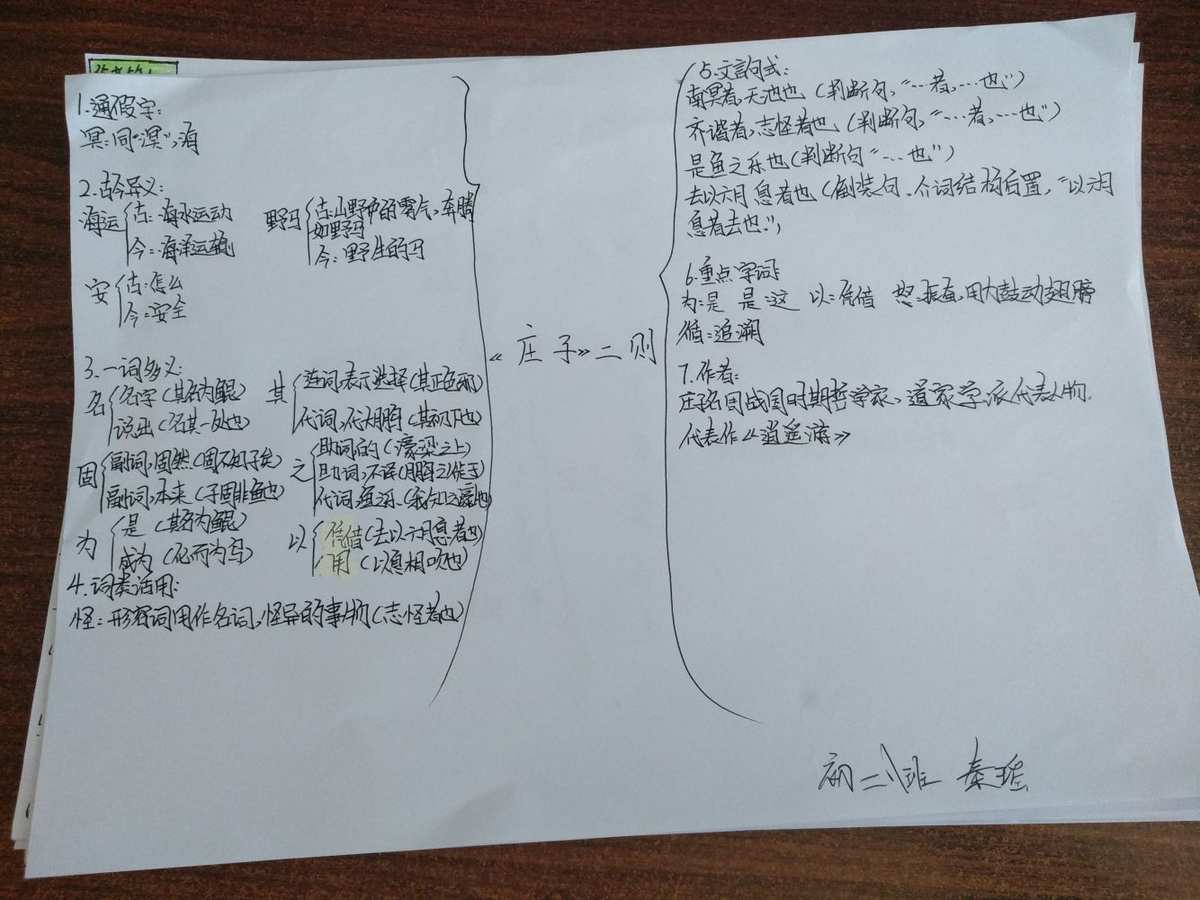 1.通假字:
冥:同“溟”,海
2.古今异义:
海运 古:海水运动
今:海洋运输
野马 古:山野中的雾气,奔腾
如野马
今:野生的马
安 古:怎么
今:安全
3.一词多义:
名 名字(其名为鲲)
说出(名其一处也)
其 连词,表示选择(其正色邪)
代词,代大鹏(其视下也)
固 副词,固然(固不知子矣)
副词,本来(子固非鱼也)
之 助词,的(濠梁之上)
助词,不译(鹏之徙于)
代词,鱼乐(我知之濠也)
为 是(其名为鲲)
成为(化而为鸟)
以 凭借(去以六月息者也)
用(以息相吹也)
4.词类活用:
怪:形容词用作名词,怪异的事物(志怪者也)
《庄子》二则
5.文言句式:
南冥者,天池也(判断句,“…者,…也”)
齐谐者,志怪者也(判断句,“…者,…也”)
是鱼之乐也(判断句“…也”)
去以六月息者也(倒装句,介词结构后置,“以六月
息者去也”)
6.重点字词:
为:是 是:这 以:凭借 怒:振奋,用力鼓动翅膀
循:追溯
7.作者:
庄子名周战国时期哲学家,道家学派代表人物.
代表作《逍遥游》
初二八班 秦瑶